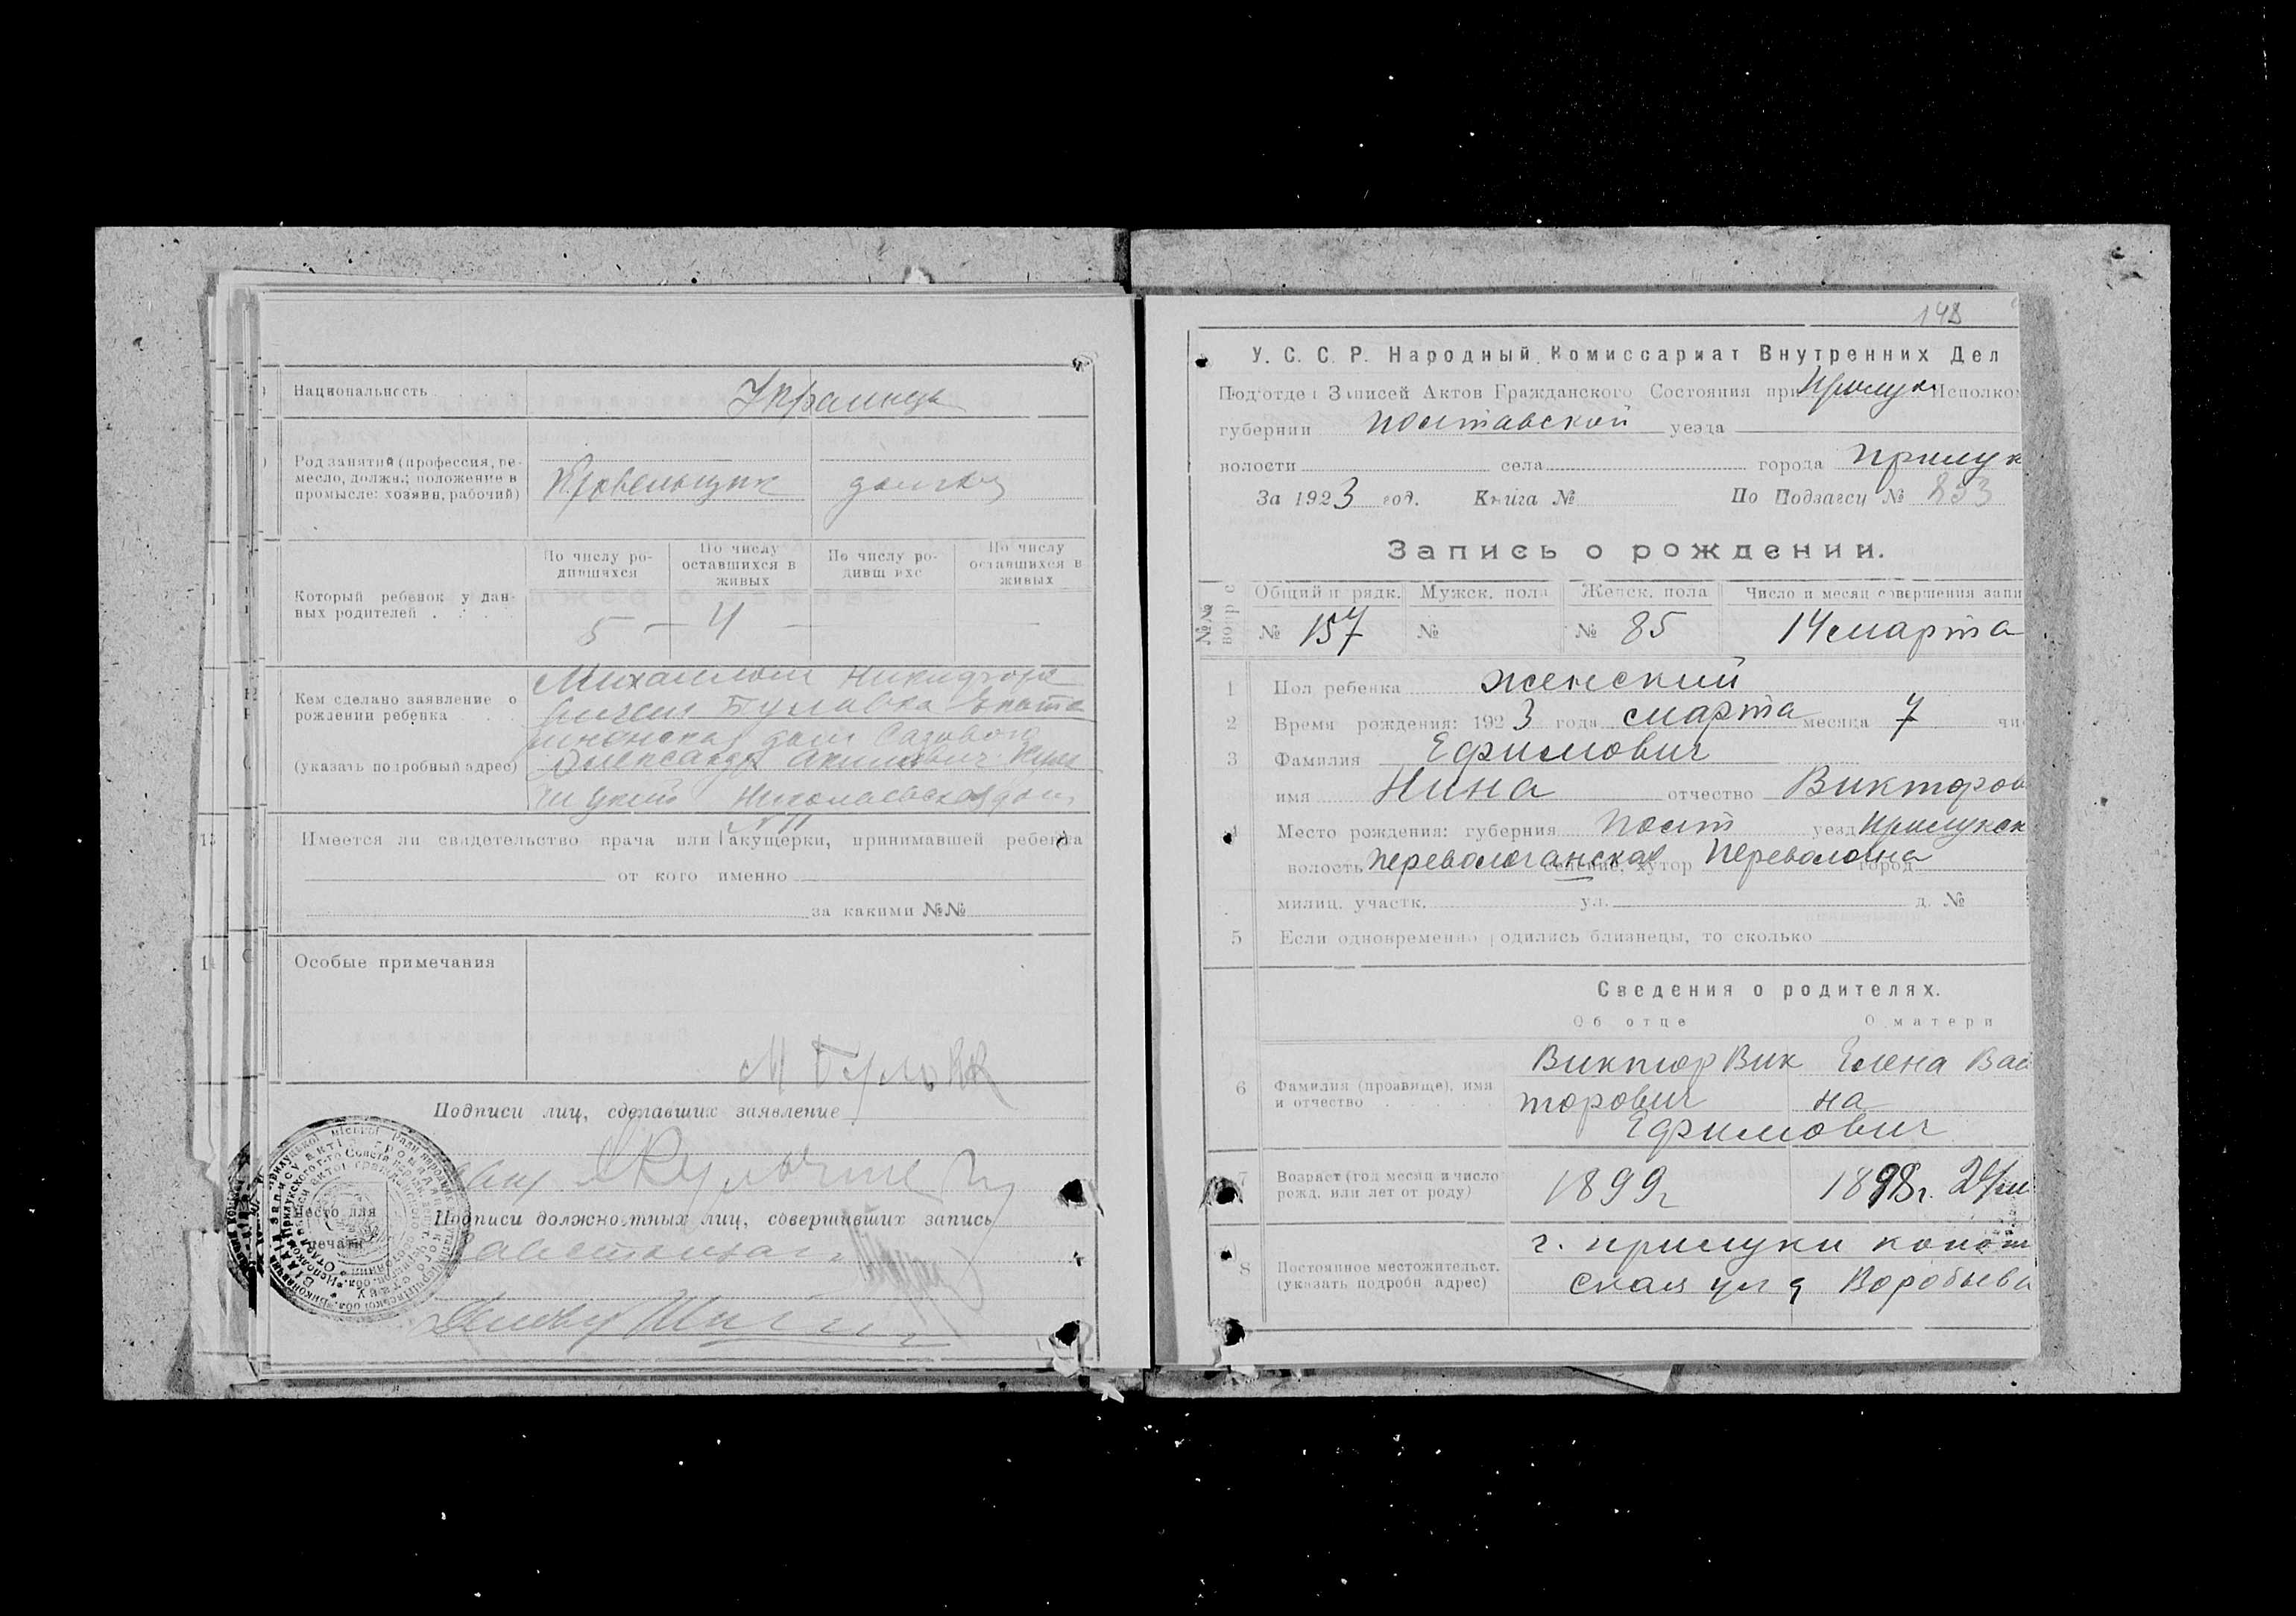 Национальность Украинцы
Род занятий (профессия, ре-
месло, должн.; положение в
промысле: хозяин, рабочий)
Кровельщик
По числу ро-
дившихся
По числу
оставшихся в
живых
По числу ро-
дивш ихс
По числу
оставшихся в
живых
Который ребенок у дан-
ных родителей . . .
5 — 4 — —
Кем сделано заявление о
рождении ребенка . . .
(указать подробный адрес)
Михаилом Никифоро
вичем Булавка Екате
дом
Александр Акимович
Николаевская дом
№ 11
Имеется ли свидетельство врача или акушерки, принимавшей ребенка
от кого именно
за какими №№
Особые примечания
М Булавка
Подписи лиц, сделавших заявление
Подписи должностных лиц, совершивших запись
Место для
печати
148
У. С. С. Р. Народный Комиссариат Внутренних Дел
Подотдел Записей Актов Гражданского Состояния при Прилук Исполко
губернии Полтавской уезда
волости села города Прилук
За 1923 год. Книга № По Подзагсу № 853
Запись о рождении.
№№
вопро
Общий п рядк. Мужск. пола Женск. пола Число и месяц совершения запи
№ 157 № № 85 14 марта
1 Пол ребенка женский
2 Время рождения: 1923 года марта месяца 7 чи
3 Фамилия Ефимович
имя Нина отчество Викторов
4 Место рождения: губерния Полт уезд Прилукск
волость Переволочанская селение, хутор Переволочна город
милиц. участк. ул. д. №
5 Если одновременно родились близнецы, то сколько
Сведения о родителях.
Об отце О матери
6 Фамилия (прозвище), имя
и отчество . . . .
Виктор Вик Елена Ва
торович на
Ефимович
7 Возраст (год месяц и число
рожд. или лет от роду)
1899 г 1898 г.
8 Постоянное местожительст.
(указать подробн адрес)
г. Прилуки Коно
ская ул д Воробьева